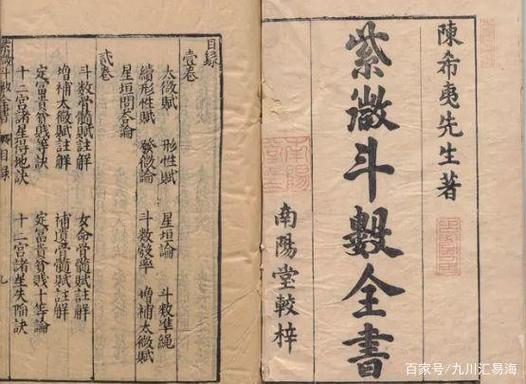 陳希夷先生著
紫微斗數全書
南陽堂較梓
目錄
壹卷
太微賦 形性賦 星垣論 斗數準繩
續形性賦 發微論 斗數彀率 增補太微賦
星垣問荅論
貳卷
斗數骨髓賦註解 女命骨髓賦註解
增補太微賦註解 補遺骨髓賦註解
定富貴貧賤等訣 定富貴貧賤十等論
十二宮諸星得地訣 十二宮諸星失陷訣
紫微斗數全書 目錄
百家号/九川汇易海